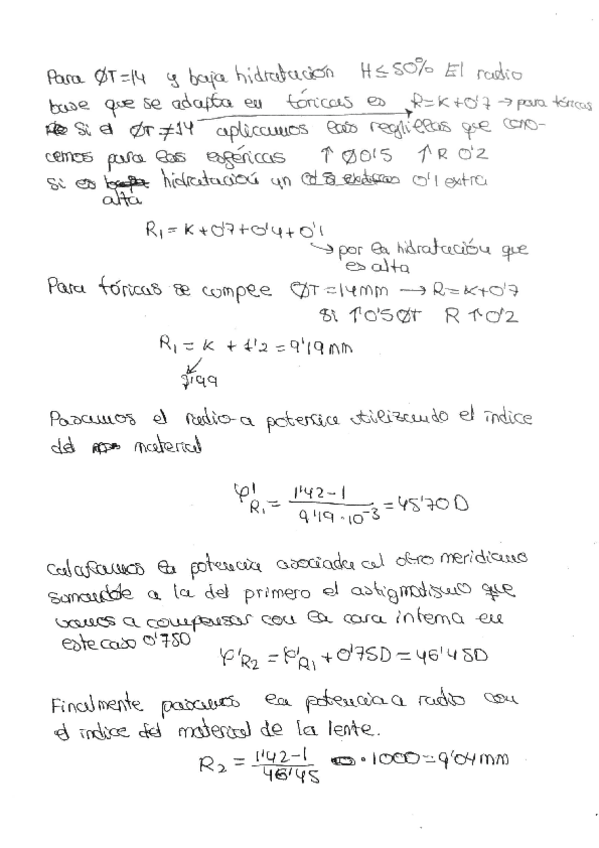 Para ØT=14 y baja hidratación H≤50% El radio
base que se adapta en tóricas es R=K+0'7 → para tóricas
Si el ØT≠14 aplicamos las reglillas que cono-
cemos para las esféricas ↑Ø0'5 ↑R 0'2
Si es hidratación un 0'1 extra
alta
R₁=K+0'7+0'4+0'1
↳ por la hidratación que
es alta
Para tóricas se cumple ØT=14mm → R=K+0'7
Si ↑0'5ØT R↑0'2
R₁=K+1'2=9'19mm
7'99
Pasamos el radio a potencia utilizando el índice
del material
φ'R₁=1'42-1/9'19·10⁻³=45'70D
Calculamos la potencia asociada al otro meridiano
sumandole a la del primero el astigmatismo que
vamos a compensar con la cara interna en
este caso 0'75D
φ'R₂=φ'R₁+0'75D=46'45D
Finalmente pasamos la potencia a radio con
el índice del material de la lente.
R₂=1'42-1/46'45 ·1000=9'04mm